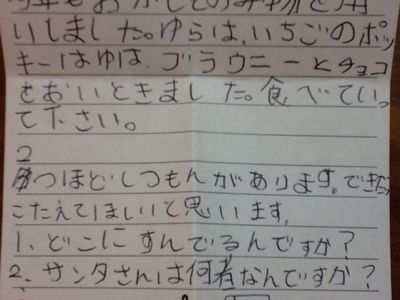 今年もおかしとのみ物を用
いしました。ゆらは、いちごのポッ
キーはゆは、ブラウニーとチョコ
をおいときました。食べてい
って下さい。
2
つほどしつもんがあります。できたら
こたえてほしいと思います。
1. どこにすんでるんですか?
2. サンタさんは何者なんですか?